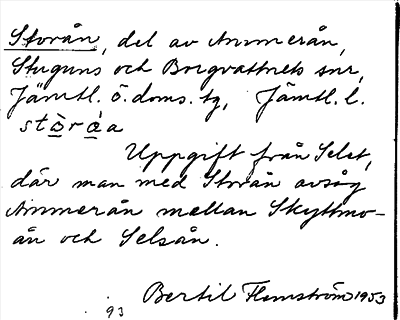 Storån, del av Ammerån,
Stuguns och Borgvattnets snr,
Jämtl. ö. doms. tg, Jämtl. l.
stò̱rà̱a
Uppgift från Selet,
där man med Storån avsåg
Ammerån mellan Skyttmo-
ån och Selsån.
Bertil Flemström 1953
93